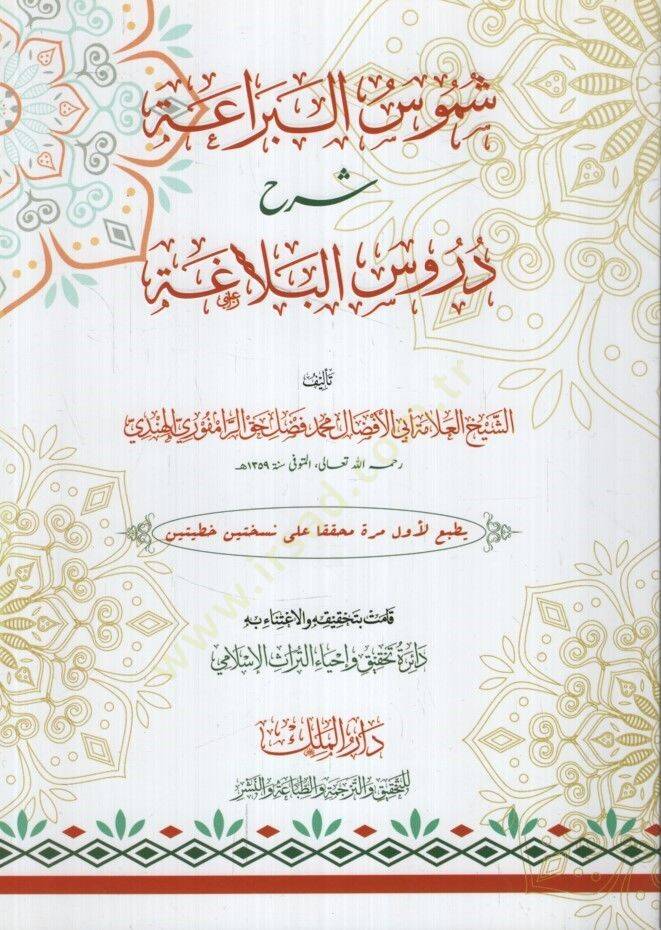 شُمُوسُ البَرَاعَة
شرح
دُرُوس البَلَاغَة
عربي
تأليفُ
الشَّيخ العلامة أبي الأفضال محمد فضل حق الرامفوري الهندي
رحمه الله تعالى، المتوفى سنة ١٣٥٩هـ
يطبع لأول مرة محققا على نسختين خطيتين
قامت بتحقيقه والاعتناء به
دائرة تحقيق وإحياء التراث الإسلامي
دار الملك
للتحقيق والترجمة والطباعة والنشر
www.irsad.com.tr